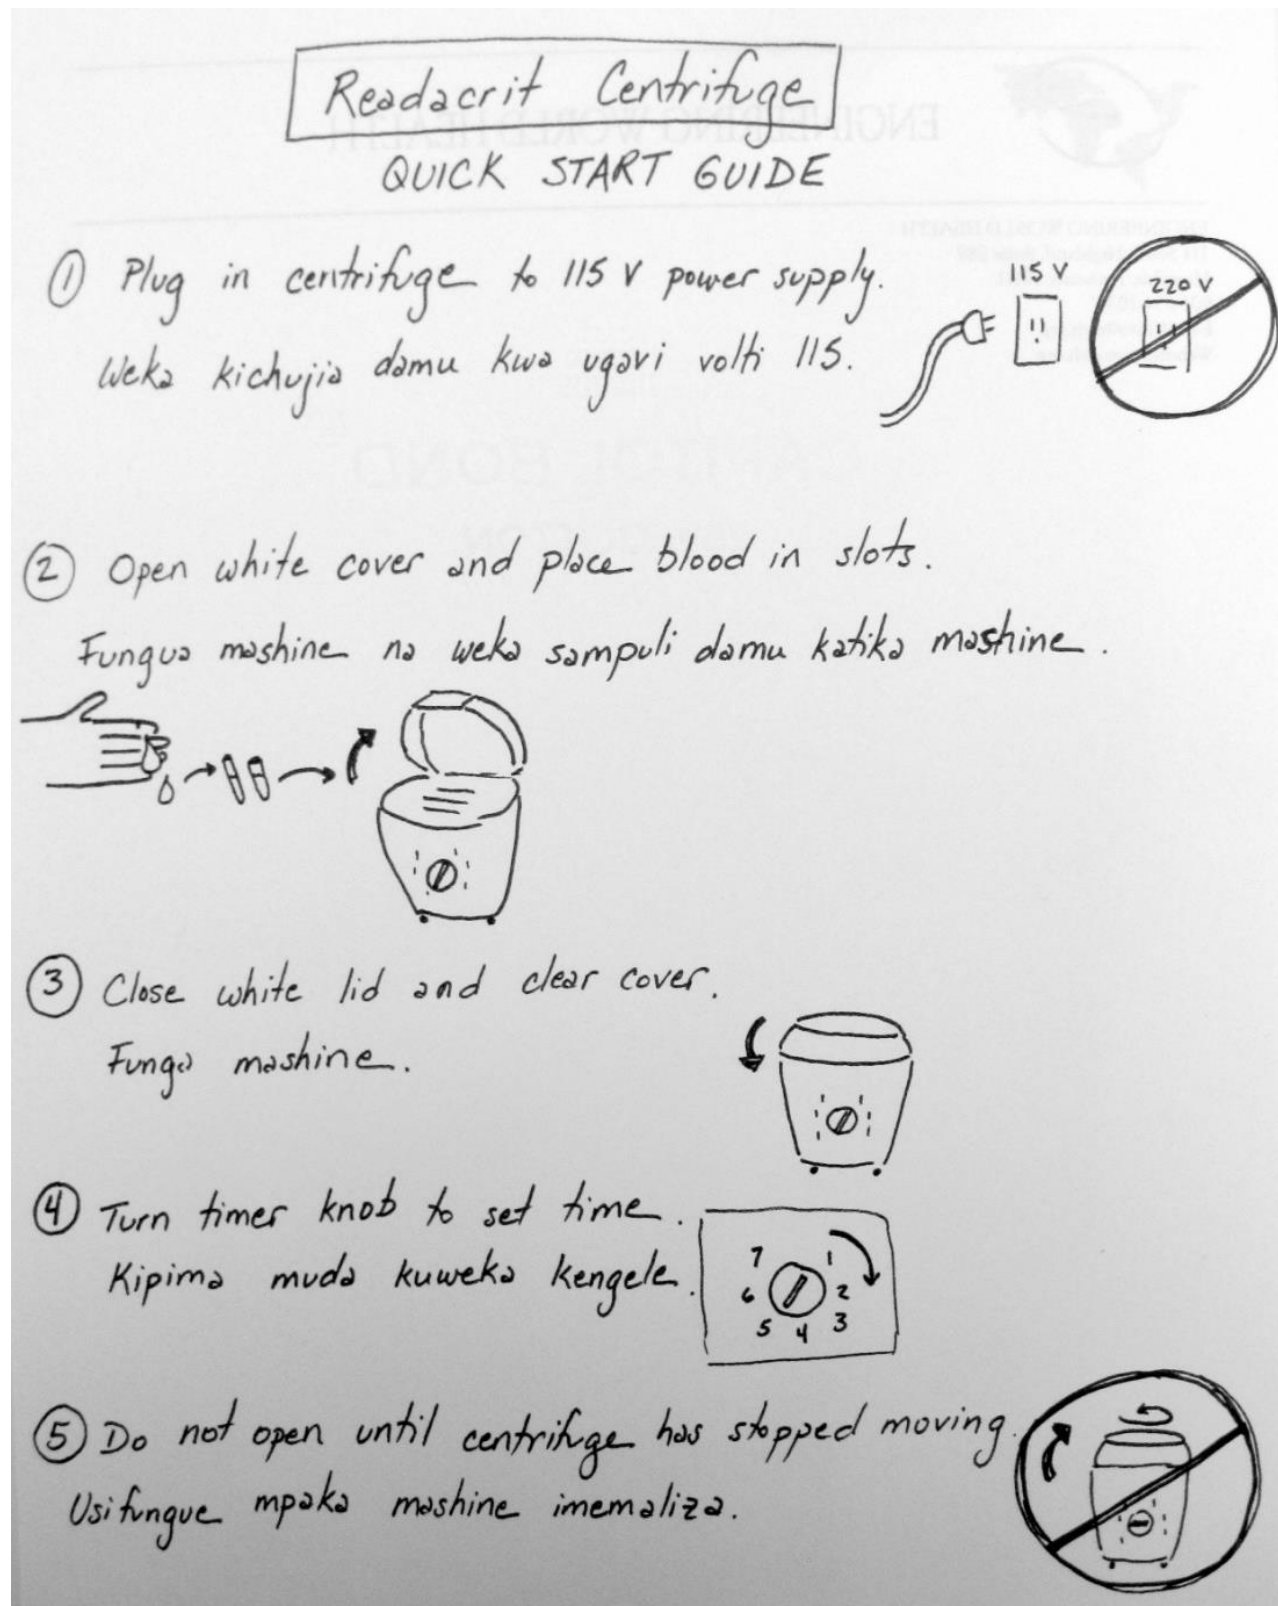 Readacrit Centrifuge
QUICK START GUIDE
① Plug in centrifuge to 115 V power supply.
Weka kichujia damu kwa ugavi volti 115.
115 V
220 V
② Open white cover and place blood in slots.
Fungua mashine na weka sampuli damu katika mashine.
③ Close white lid and clear cover.
Funga mashine.
④ Turn timer knob to set time.
Kipima muda kuweka kengele.
7 1
6 2
5 4 3
⑤ Do not open until centrifuge has stopped moving.
Usifungue mpaka mashine imemaliza.
ENGINEERING WORLD HEALTH
ENGINEERING WORLD HEALTH
CAPITOL BOND